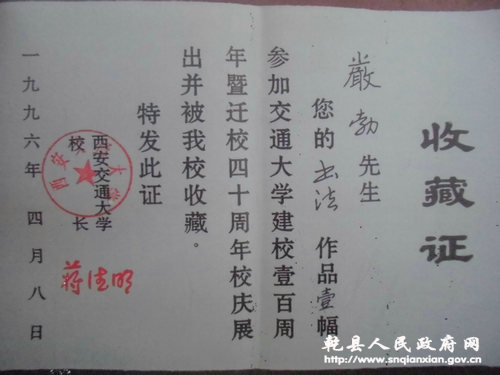 收藏证
嚴勃先生
您的书法作品壹幅
参加交通大学建校壹百周
年暨迁校四十周年校庆展
出并被我校收藏。
特发此证
西安交通大学
校长
蒋德明
一九九六年四月八日
西安交大学
乾县人民政府网
http://www.snqianxian.gov.cn